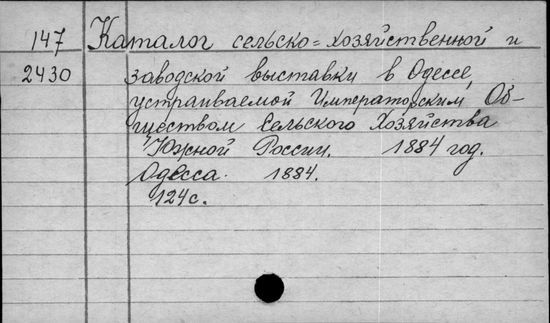 147 Каталог сельско=хозяйственной и
2430 заводской выставки в Одессе,
устраиваемой Императорским Об-
ществом Сельского Хозяйства
Южной России. 1884 год.
Одесса. 1884.
124с.